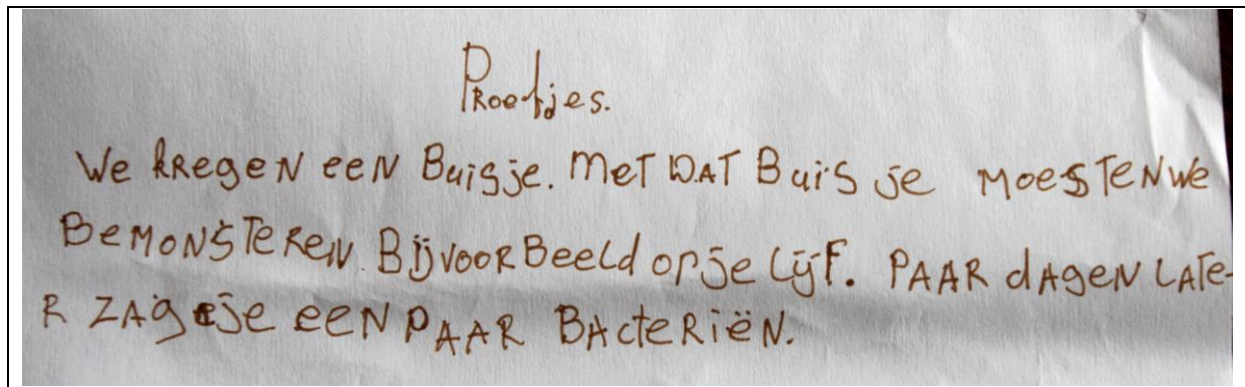 Proefjes.
We kregen een Buisje. Met DAT Buisje moesten we
Bemonsteren. Bijvoorbeeld op je lijf. PAAR dagen late-
R zag je een paar Bacteriën.